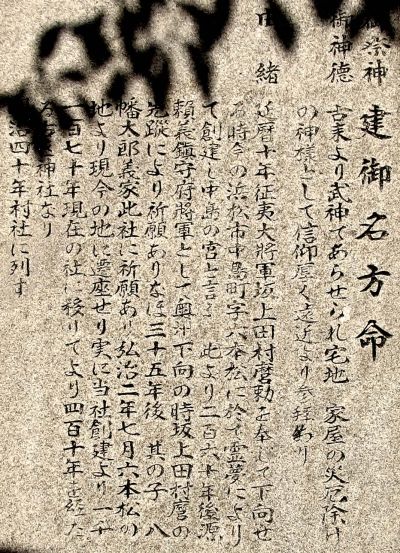 御祭神 建御名方命
御神徳 古来より武神であらせられ宅地 家屋の災厄除け
の神様として信仰厚く遠近より参拝あり
由緒 延暦十年征夷大将軍坂上田村麿勅を奉じて下向せ
る時今の浜松市中島町字六本松に於て霊夢により
て創建し中島の宮と言う 此より二百六十年後源
頼義鎮守府將軍として奥州下向の時坂上田村麿の
先蹤により祈願ありなほ三十五年後 其の子 八
幡大郎義家此社に祈願あり弘治二年七月六本松の
地より現今の地に遷座せり実に当社創建より一千
一百七十年現在の社に移りてより四百十年を経た
る古き神社なり
治四十年村社に列す